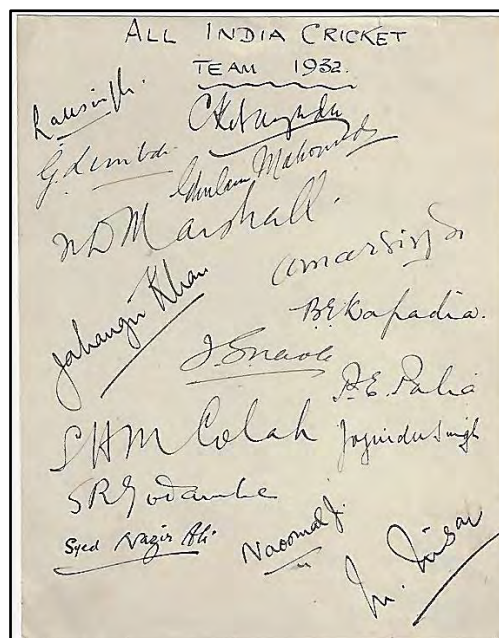 ALL INDIA CRICKET
TEAM 1932.
Lall Singh.
C K Nayudu
G. Limbdi.
Ghulam Mahomed
N D Marshall.
Amar Singh
Jahangir Khan
B.E. Kapadia.
J. G. Navle
P. E. Palia
S H M Colah
Joginder Singh
S R Godambe
Syed Nazir Ali.
Naoomal J.
M. Nisar